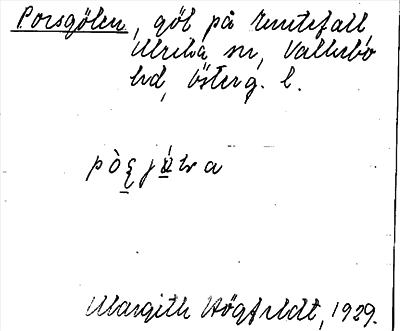 Porsgölen, göl på Rumtefall,
Ulrika sn, Vallebo
hd, Österg. l.
Margith Högfeldt, 1929.